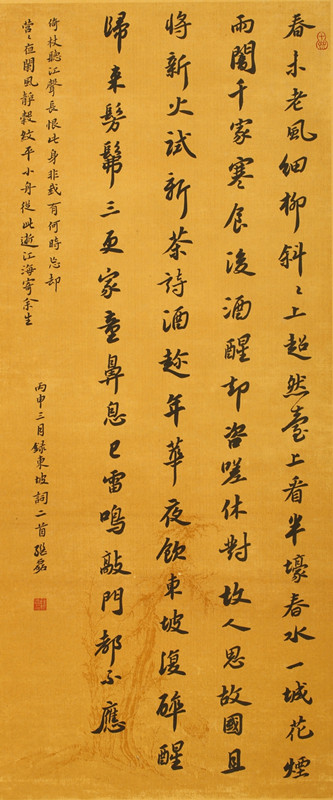 春未老風細柳斜〻上超然臺上看半壕春水一城花煙
雨闇千家寒食後酒醒却咨嗟休對故人思故國且
將新火試新茶詩酒趁年華夜飲東坡復醉醒
歸來髣髴三更家童鼻息已雷鳴敲門都不應
倚杖聽江聲長恨此身非我有何時忘却
營〻夜闌風靜縠紋平小舟從此逝江海寄余生
丙申三月錄東坡詞二首